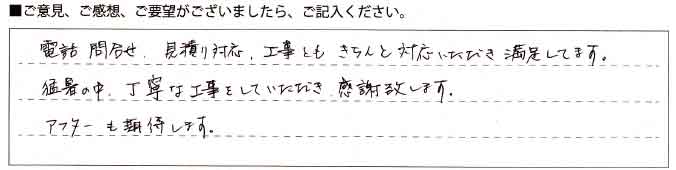 ■ご意見、ご感想、ご要望がございましたら、ご記入ください。
電話問合せ、見積り対応、工事ともきちんと対応いただき満足してます。
猛暑の中、丁寧な工事をしていただき、感謝致します。
アフターも期待します。